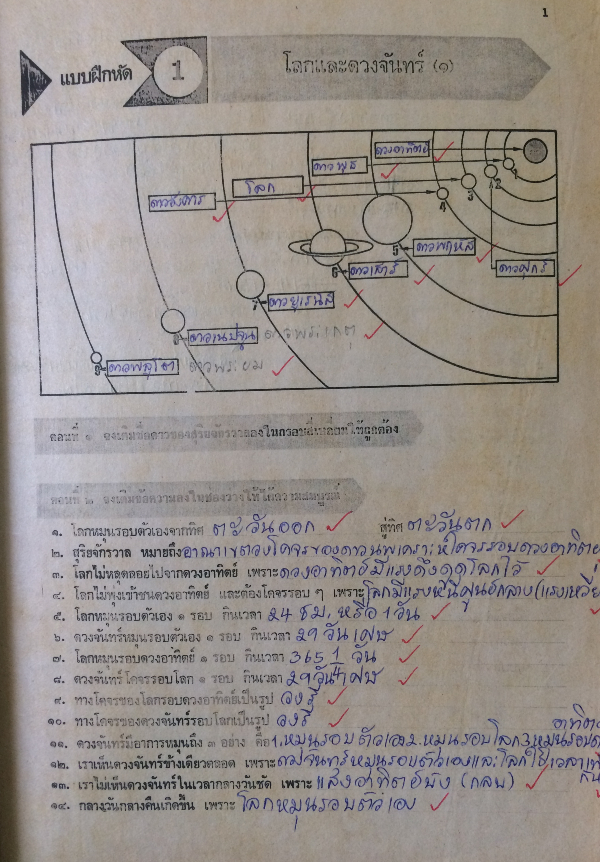 1
แบบฝึกหัด 1 โลกและดวงจันทร์ (๑)
ดวงอาทิตย์
ดาวพุธ
โลก
ดาวอังคาร
1
2
3
4
5
ดาวพฤหัส
ดาวศุกร์
6
ดาวเสาร์
7
ดาวยูเรนัส
8
ดาวเนปจูน ดาวพระเกตุ
9
ดาวพลูโต ดาวพระยม
ตอนที่ ๑ จงเติมชื่อดาวของสุริยจักรวาลลงในกรอบสี่เหลี่ยมให้ถูกต้อง
ตอนที่ ๒ จงเติมข้อความลงในช่องว่างให้ได้ความสมบูรณ์
๑. โลกหมุนรอบตัวเองจากทิศ ตะวันออก สู่ทิศ ตะวันตก
๒. สุริยจักรวาล หมายถึง อาณาเขตวงโคจรของดาวนพเคราะห์โคจรรอบดวงอาทิตย์
๓. โลกไม่หลุดลอยไปจากดวงอาทิตย์ เพราะ ดวงอาทิตย์มีแรงดึงดูดโลกไว้
๔. โลกไม่พุ่งเข้าชนดวงอาทิตย์ และต้องโคจรรอบ ๆ เพราะ โลกมีแรงหนีศูนย์กลาง (แรงเหวี่
๕. โลกหมุนรอบตัวเอง ๑ รอบ กินเวลา 24 ชม. หรือ 1 วัน
๖. ดวงจันทร์หมุนรอบตัวเอง ๑ รอบ กินเวลา 29 วันเศษ
๗. โลกหมุนรอบดวงอาทิตย์ ๑ รอบ กินเวลา 365 1/4 วัน
๘. ดวงจันทร์โคจรรอบโลก ๑ รอบ กินเวลา 29 วันเศษ
๙. ทางโคจรของโลกรอบดวงอาทิตย์เป็นรูป วงรี
๑๐. ทางโคจรของดวงจันทร์รอบโลกเป็นรูป วงรี
อาทิตย์
๑๑. ดวงจันทร์มีอาการหมุนถึง ๓ อย่าง คือ 1. หมุนรอบตัวเอง 2. หมุนรอบโลก 3. หมุนรอบ
๑๒. เราเห็นดวงจันทร์ข้างเดียวตลอด เพราะ ดวงจันทร์หมุนรอบตัวเองและโลกใช้เวลาเท่
กัน
๑๓. เราไม่เห็นดวงจันทร์ในเวลากลางวันชัด เพราะ แสงอาทิตย์บัง (กลบ)
๑๔. กลางวันกลางคืนเกิดขึ้น เพราะ โลกหมุนรอบตัวเอง